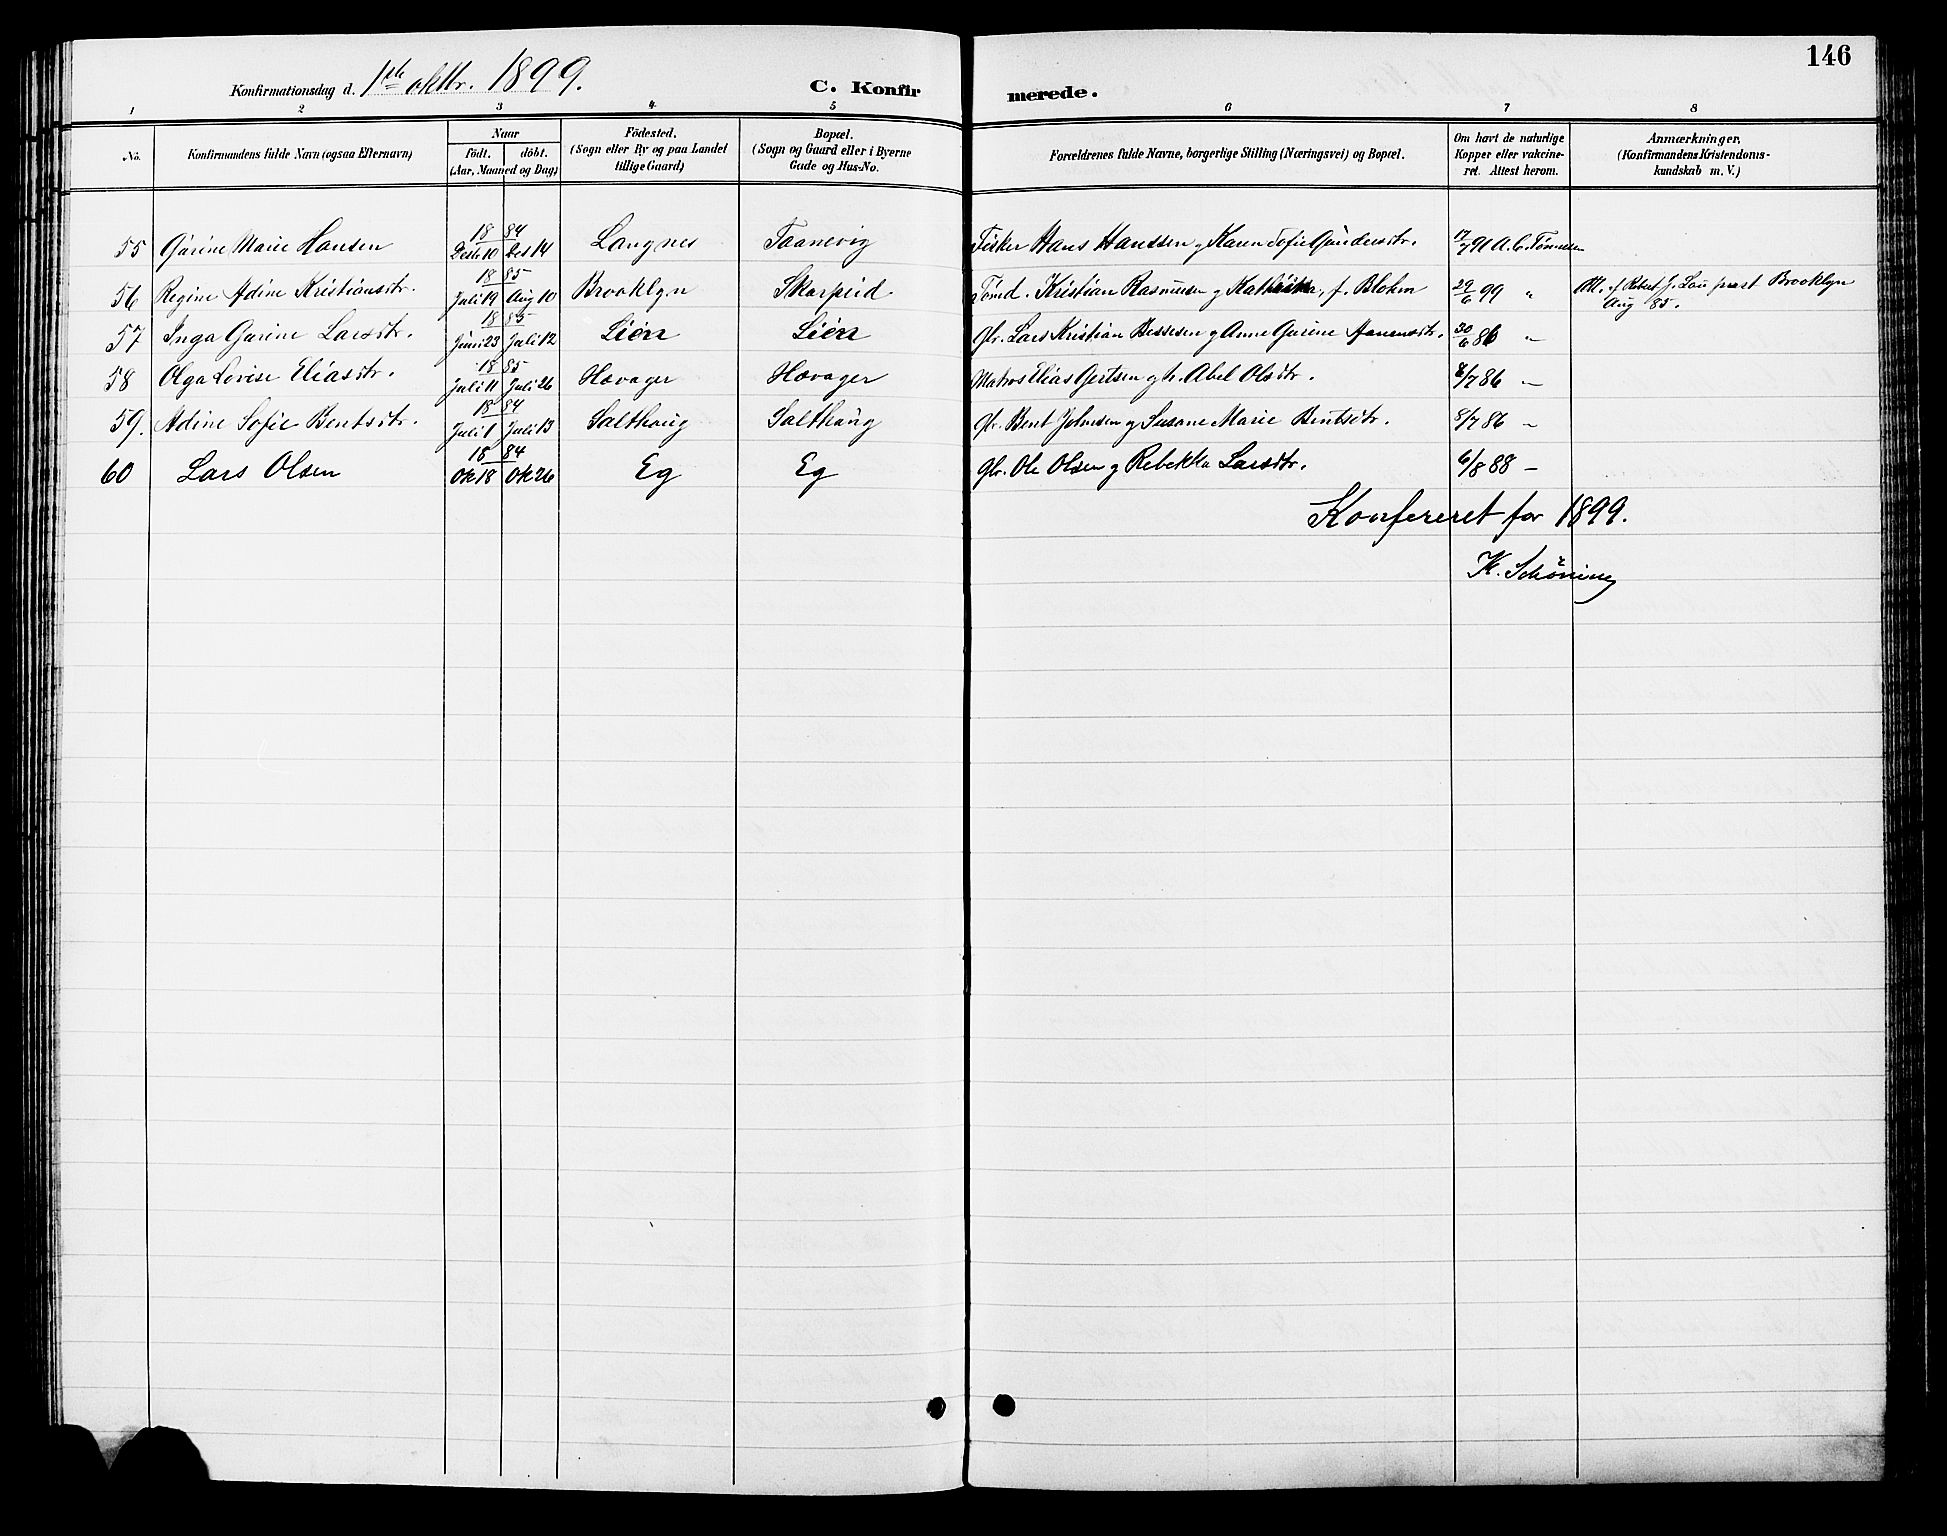 146
Konfirmationsdag d. 1ste oktbr. 1899. C. Konfirmerede.
1 2 3 4 5 6 7 8
No. Konfirmandens fulde Navn (ogsaa Efternavn) Naar födt. döbt. (Aar, Maaned og Dag) Födested. (Sogn eller By og paa Landet tillige Gaard) Bopæl. (Sogn og Gaard eller i Byerne Gade og Hus-No. Forældrenes fulde Navne, borgerlige Stilling (Næringsvei) og Bopæl. Om havt de naturlige Kopper eller vakcineret. Attest herom. Anmærkninger, (Konfirmandens Kristendomskundskab m. V.)
55 Garine Marie Hansen 1884 Desbr 10 Des 14 Langnes Taanevig Fisker Hans Hanssen og Karen Sofie Gundersdtr. 17/7 91 A. C. Tønnessen
56 Regine Adine Kristiansdtr. 1885 Juli 19 Aug 10 Brooklyn Skarpeid Tømd. Kristian Rasmussen og Kathrina, f. Blohm 29/6 99 " Att. f. Robert J. Lau prest Brooklyn Aug 85.
57 Inga Garine Larsdtr. 1885 Juni 23 Juli 12 Lien Lien Gbr. Lars Kristian Bessesen og Anne Garine Aanensdtr. 30/6 86 "
58 Olga Lovise Eliasdtr. 1885 Juli 11 Juli 26 Høvager Høvager Matros Elias Gertsen og h. Abel Olsdtr. 8/7 86 "
59. Adine Sofie Bentsdtr. 1884 Juli 1 Juli 13 Salthaug Salthaug Gbr. Bent Johnsen og Susane Marie Bentsdtr. 8/7 86 "
60 Lars Olsen 1884 Ok 18 Ok 26 Eg Eg Gbr. Ole Olsen og Rebekka Larsdtr. 6/8 88 –
Konfereret for 1899.
K. Schöning